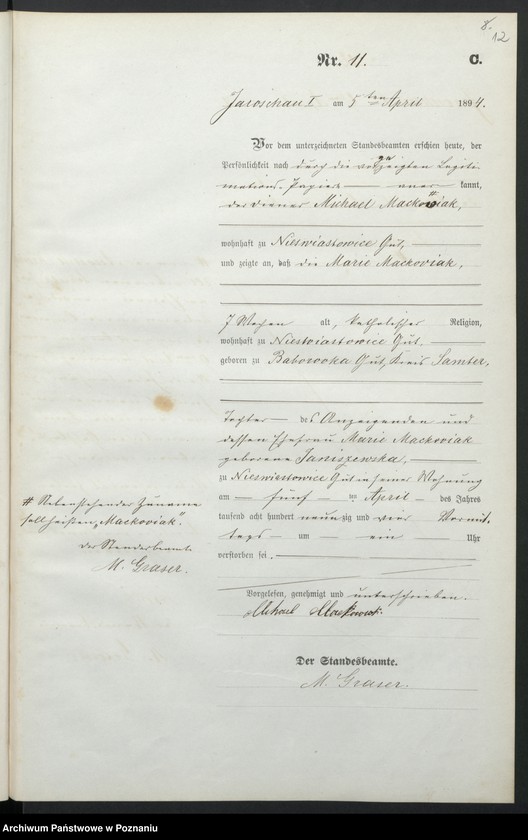 8.
12
Nr. 11.
C.
Jaroschau I am 5 ten April 1894.
Vor dem unterzeichneten Standesbeamten erschien heute, der
Persönlichkeit nach durch die vorgezeigten Legiti-
mations-Papiere — aner kannt,
der Diener Michael Mackowiak,
wohnhaft zu Nieswiastowice Gut,
und zeigte an, daß die Marie Mackoviak,
7 Wochen alt, katholischer Religion,
wohnhaft zu Nieswiastowice Gut
geboren zu Baborowko Gut, Kreis Samter,
Tochter des Anzeigenden und
dessen Ehefrau Marie Mackoviak
geborene Janiszewska,
zu Nieswiestowice Gut in seiner Wohnung
am fünf ten April des Jahres
tausend acht hundert neunzig und vier Vormit-
tags um ein Uhr
verstorben sei.
# Nebenstehender Zuname
soll heißen „Mackoviak".
Der Standesbeamte
M. Graser.
Vorgelesen, genehmigt und unterschrieben.
Michael
Der Standesbeamte.
M. Graser.
Archiwum Państwowe w Poznaniu